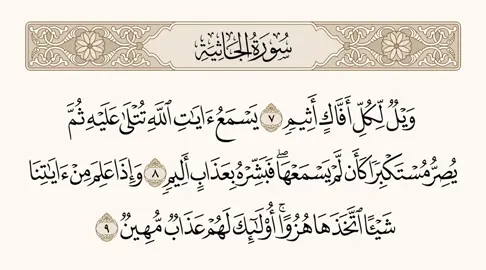 سُورَةُ الجَاثِيَةِ
وَيْلٌ لِّكُلِّ أَفَّاكٍ أَثِيمٍ ٧ يَسْمَعُ ءَايَاتِ ٱللَّهِ تُتْلَىٰ عَلَيْهِ ثُمَّ
يُصِرُّ مُسْتَكْبِرًا كَأَن لَّمْ يَسْمَعْهَاۖ فَبَشِّرْهُ بِعَذَابٍ أَلِيمٍ ٨ وَإِذَا عَلِمَ مِنْ ءَايَاتِنَا
شَيْـًٔا ٱتَّخَذَهَا هُزُوًاۚ أُو۟لَـٰٓئِكَ لَهُمْ عَذَابٌ مُّهِينٌ ٩